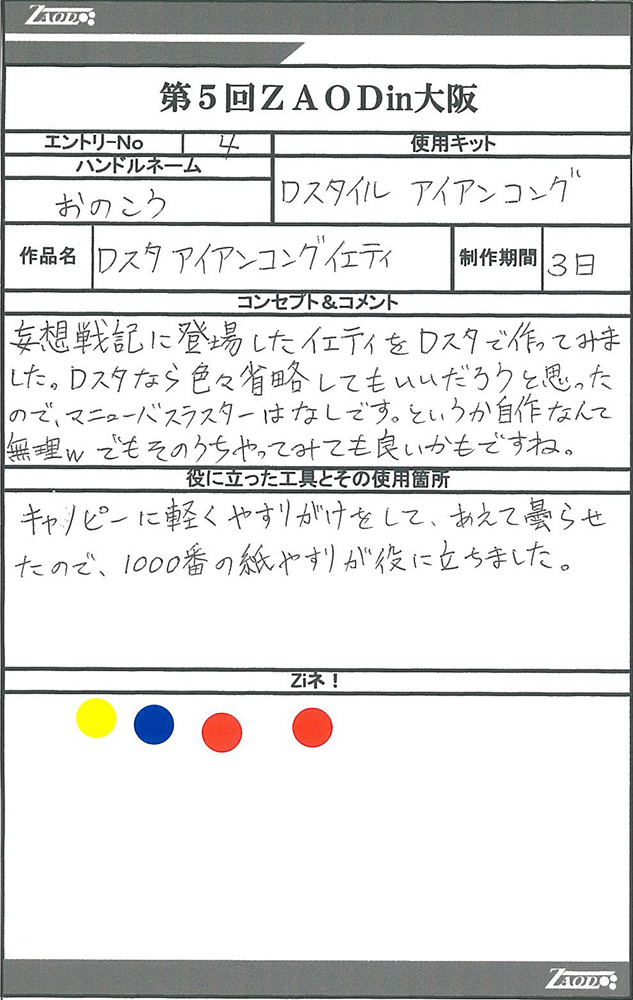 ZAOD
第5回ZAODin大阪
エントリ-No 4 使用キット
ハンドルネーム
おのこう
Dスタイル アイアンコング
作品名 Dスタ アイアンコングイエティ 制作期間 3日
コンセプト&コメント
妄想戦記に登場したイエティをDスタで作ってみま
した。Dスタなら色々省略してもいいだろうと思った
ので、マニューバスラスターはなしです。というか自作なんて
無理w でもそのうちやってみても良いかもですね。
役に立った工具とその使用箇所
キャノピーに軽くやすりがけをして、あえて曇らせ
たので、1000番の紙やすりが役に立ちました。
Ziネ!
ZAOD